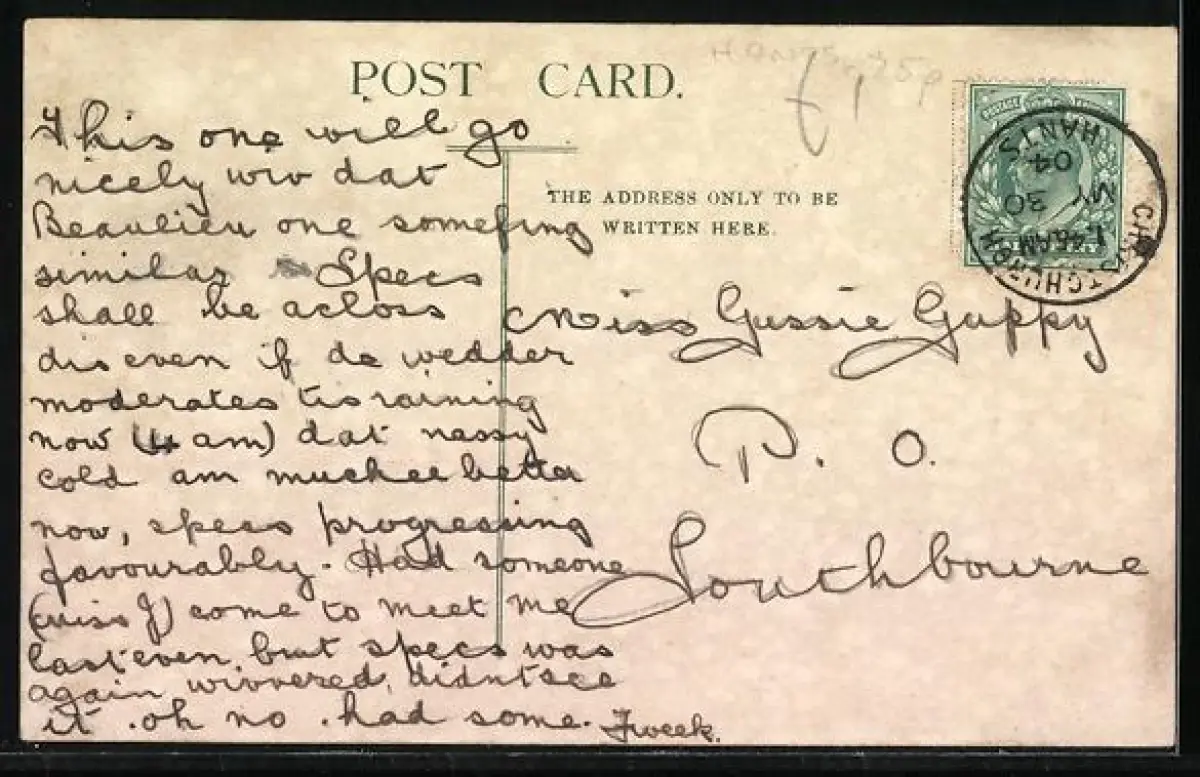 POST CARD.
This one will go
nicely wiv dat
Beaulieu one somefing
similar Specs
shall be acloss
dis even if de wedder
moderates tis raining
now (4 am) dat nassy
cold am muchee better
now, specs progressing
favourably. Had someone
(miss J) come to meet me
last even, but specs was
again wivvered, didnt see
it . oh no . had some.
THE ADDRESS ONLY TO BE
WRITTEN HERE.
Miss Gussie Guppy
P. O.
Southbourne
HANTS 25p
£1
CHRISTCHURCH
1.45AM
MY 30
04
HANTS